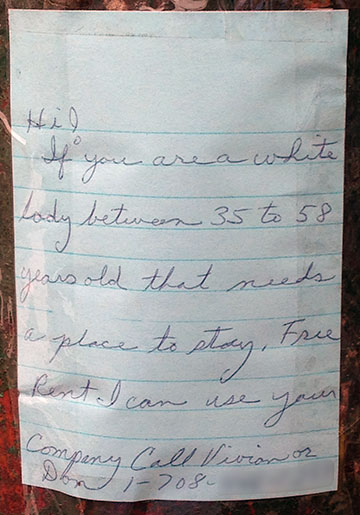 Hi!
If you are a white
lady between 35 to 58
years old that needs
a place to stay, Free
Rent. I can use your
Company Call Vivian or
Don 1-708-